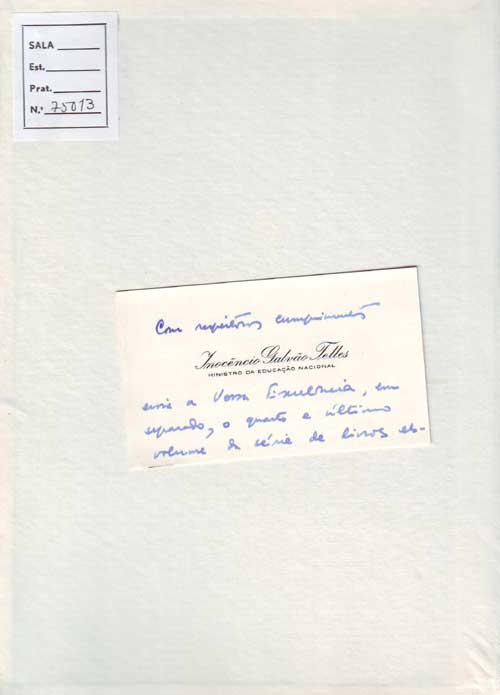 SALA
Est.
Prat.
N.º 75013
Com respeitosos cumprimentos
Inocêncio Galvão Telles
MINISTRO DA EDUCAÇÃO NACIONAL
envia a Vossa Excelência, em
separado, o quarto e último
volume da série de livros es-